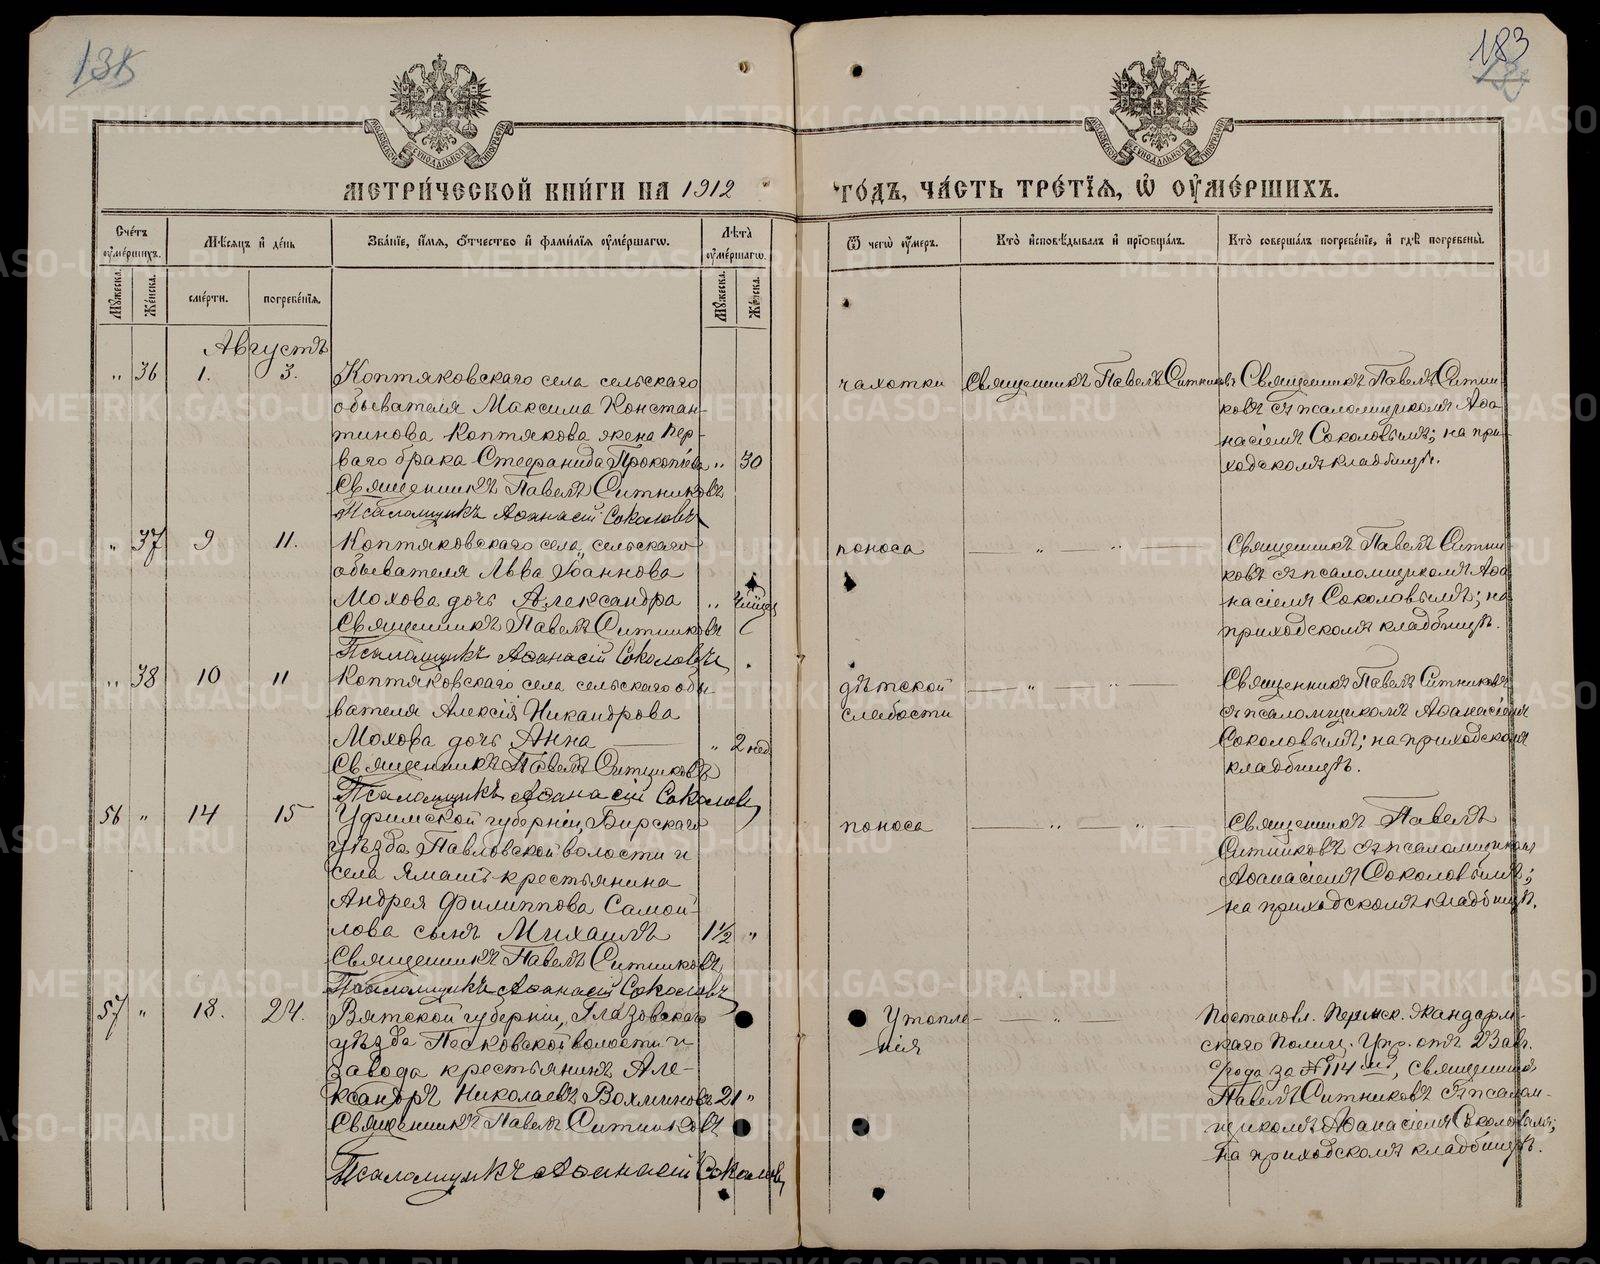 135
183
МЕТРИ́ЧЕСКОЙ КНИ́ГИ НА 1912
ГО́ДЪ, ЧА́СТЬ ТРЕ́ТІѦ, Ѡ҆ ОУ҆МЕ́РШИХЪ.
Сче́тъ оу҆ме́ршихъ.
Мѣ́сяцъ и҆ де́нь
Зва́ніе, и҆́мя, о҆́тчество и҆ фами́лія оу҆ме́ршагѡ.
Лѣ́та оу҆ме́ршагѡ.
Ѿ чегѡ̀ оу҆́меръ.
Кто̀ и҆сповѣ́дывалъ и҆ пріѡбща́лъ.
Кто̀ соверша́лъ погребе́ніе, и҆ гдѣ̀ погребены̀.
Му́жеска.
Же́нска.
сме́рти.
погребе́нія.
Му́жеска.
Же́нска.
Августъ
" 36 1. 3. Коптяковскаго села сельскаго
обывателя Максима Констан-
тинова Коптякова жена пер-
ваго брака Стефанида Прокопіева " 30
Священникъ Павелъ Ситниковъ
Псаломщикъ Аѳанасій Соколовъ
чахотки
Священникъ Павелъ Ситниковъ
Священникъ Павелъ Ситни-
ковъ съ псаломщикомъ Аѳа
насіемъ Соколовымъ; на при-
ходскомъ кладбищѣ.
" 37 9 11. Коптяковскаго села, сельскаго
обывателя Льва Іоаннова
Мохова дочь Александра "
Священникъ Павелъ Ситниковъ
Псаломщикъ Аѳанасій Соколовъ
поноса
— " — " —
Священникъ Павелъ Ситни-
ковъ съ псаломщикомъ Аѳа
насіемъ Соколовымъ; на
приходскомъ кладбищѣ.
" 38 10 11 Коптяковскаго села сельскаго обы-
вателя Алексія Никандрова
Мохова дочь Анна — " 2 нед
Священникъ Павелъ Ситниковъ
Псаломщикъ Аѳанасій Соколовъ
дѣтской
слабости
— " — " —
Священникъ Павелъ Ситниковъ
съ псаломщикомъ Аѳанасіемъ
Соколовымъ; на приходскомъ
кладбищѣ.
56 " 14 15 Уфимской губерніи, Бирскаго
уѣзда Павловской волости и
села крестьянина
Андрея Филиппова Самой-
лова сынъ Михаилъ 1 1/2 "
Священникъ Павелъ Ситниковъ
Псаломщикъ Аѳанасій Соколовъ
поноса
— " — " —
Священникъ Павелъ
Ситниковъ съ псаломщикомъ
Аѳанасіемъ Соколовымъ;
на приходскомъ кладбищѣ.
57 " 18. 24. Вятской губерніи, Глазовскаго
уѣзда Песковской волости и
завода крестьянинъ Але-
ксандръ Николаевъ Вохминовъ 21 "
Священникъ Павелъ Ситниковъ
Псаломщикъ Аѳанасій Соколовъ
Утопле-
нія
— " —
Постановл. Пермск. Жандарм-
скаго Полиц. Упр. отъ 23 авг.
с/года за № 114 мъ, Священникъ
Павелъ Ситниковъ съ псалом-
щикомъ Аѳанасіемъ Соколовымъ;
на приходскомъ кладбищѣ.
METRIKI.GASO-URAL.RU